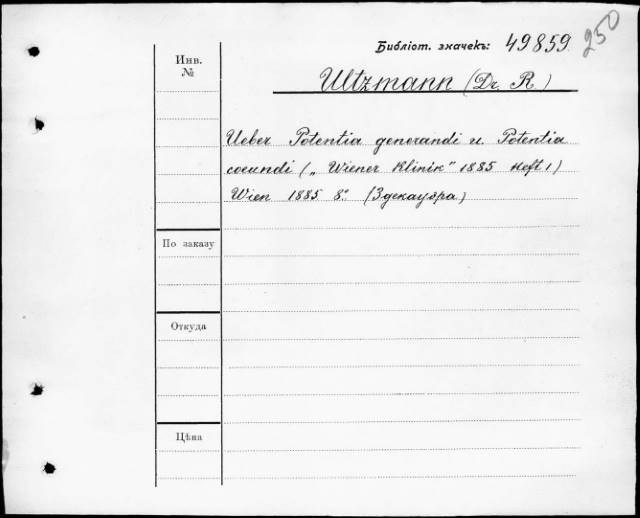 Библіот. значекъ: 49859
250
Инв.
№
Ultzmann (Dr. R.)
Ueber Potentia generandi u. Potentia
coeundi („Wiener Klinik" 1885 Heft 1)
Wien 1885 8º (Здекауэра)
По заказу
Откуда
Цѣна